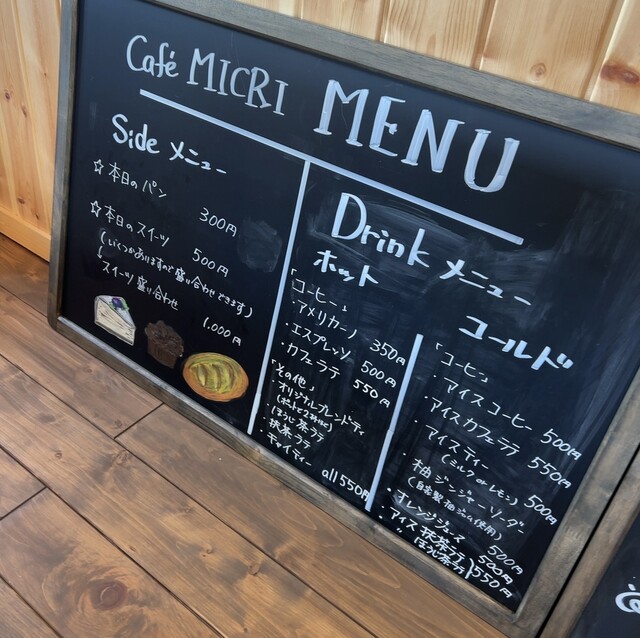 Café MICRI MENU
Side メニュー
☆本日のパン
300円
☆本日のスイーツ
500円
(いくつかありますので盛り合わせできます)
スイーツ盛り合わせ
1,000円
Drink メニュー
ホット
「コーヒー」
・アメリカーノ 350円
・エスプレッソ 500円
・カフェラテ 550円
「その他」
・オリジナルブレンドティ
(ポットで2杯ほど)
・ほうじ茶ラテ
・抹茶ラテ
・チャイティー
all 550円
コールド
「コーヒー」
・アイスコーヒー 500円
・アイスカフェラテ 550円
・アイスティー
(ミルク or レモン) 500円
・柚ジンジャーソーダー
(自家製柚ジャム使用) 500円
・オレンジジュース 500円
・アイス抹茶ラテ
〃 ほうじ茶ラテ 550円